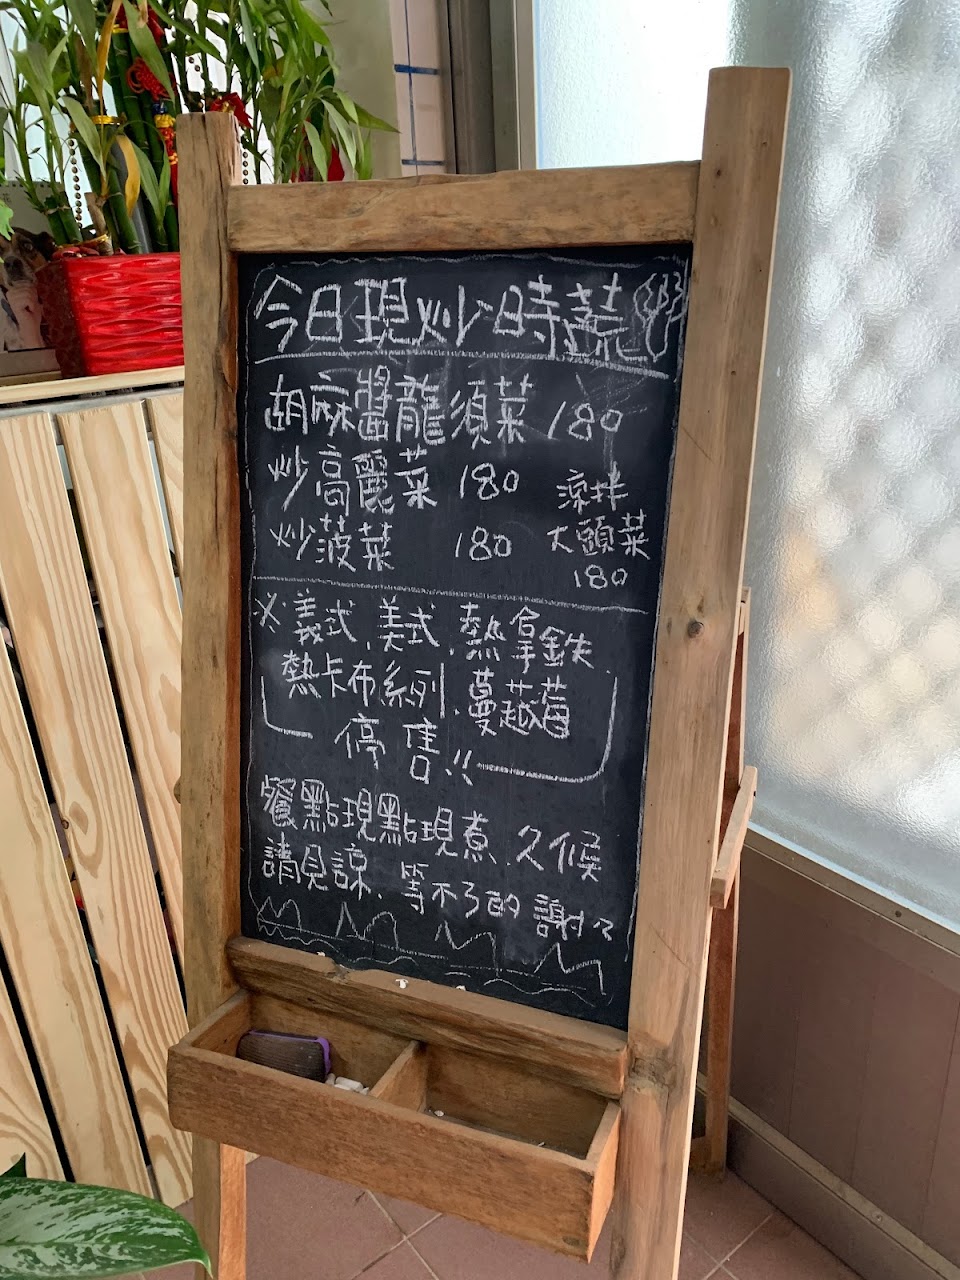 今日現炒時蔬
胡麻醬龍須菜 180
炒高麗菜 180
炒菠菜 180
涼拌
大頭菜
180
※義式.美式.熱拿鉄.
熱卡布系列.蔓越莓
停售!!
餐點現點現煮.久候
請見諒.等不了的 謝々